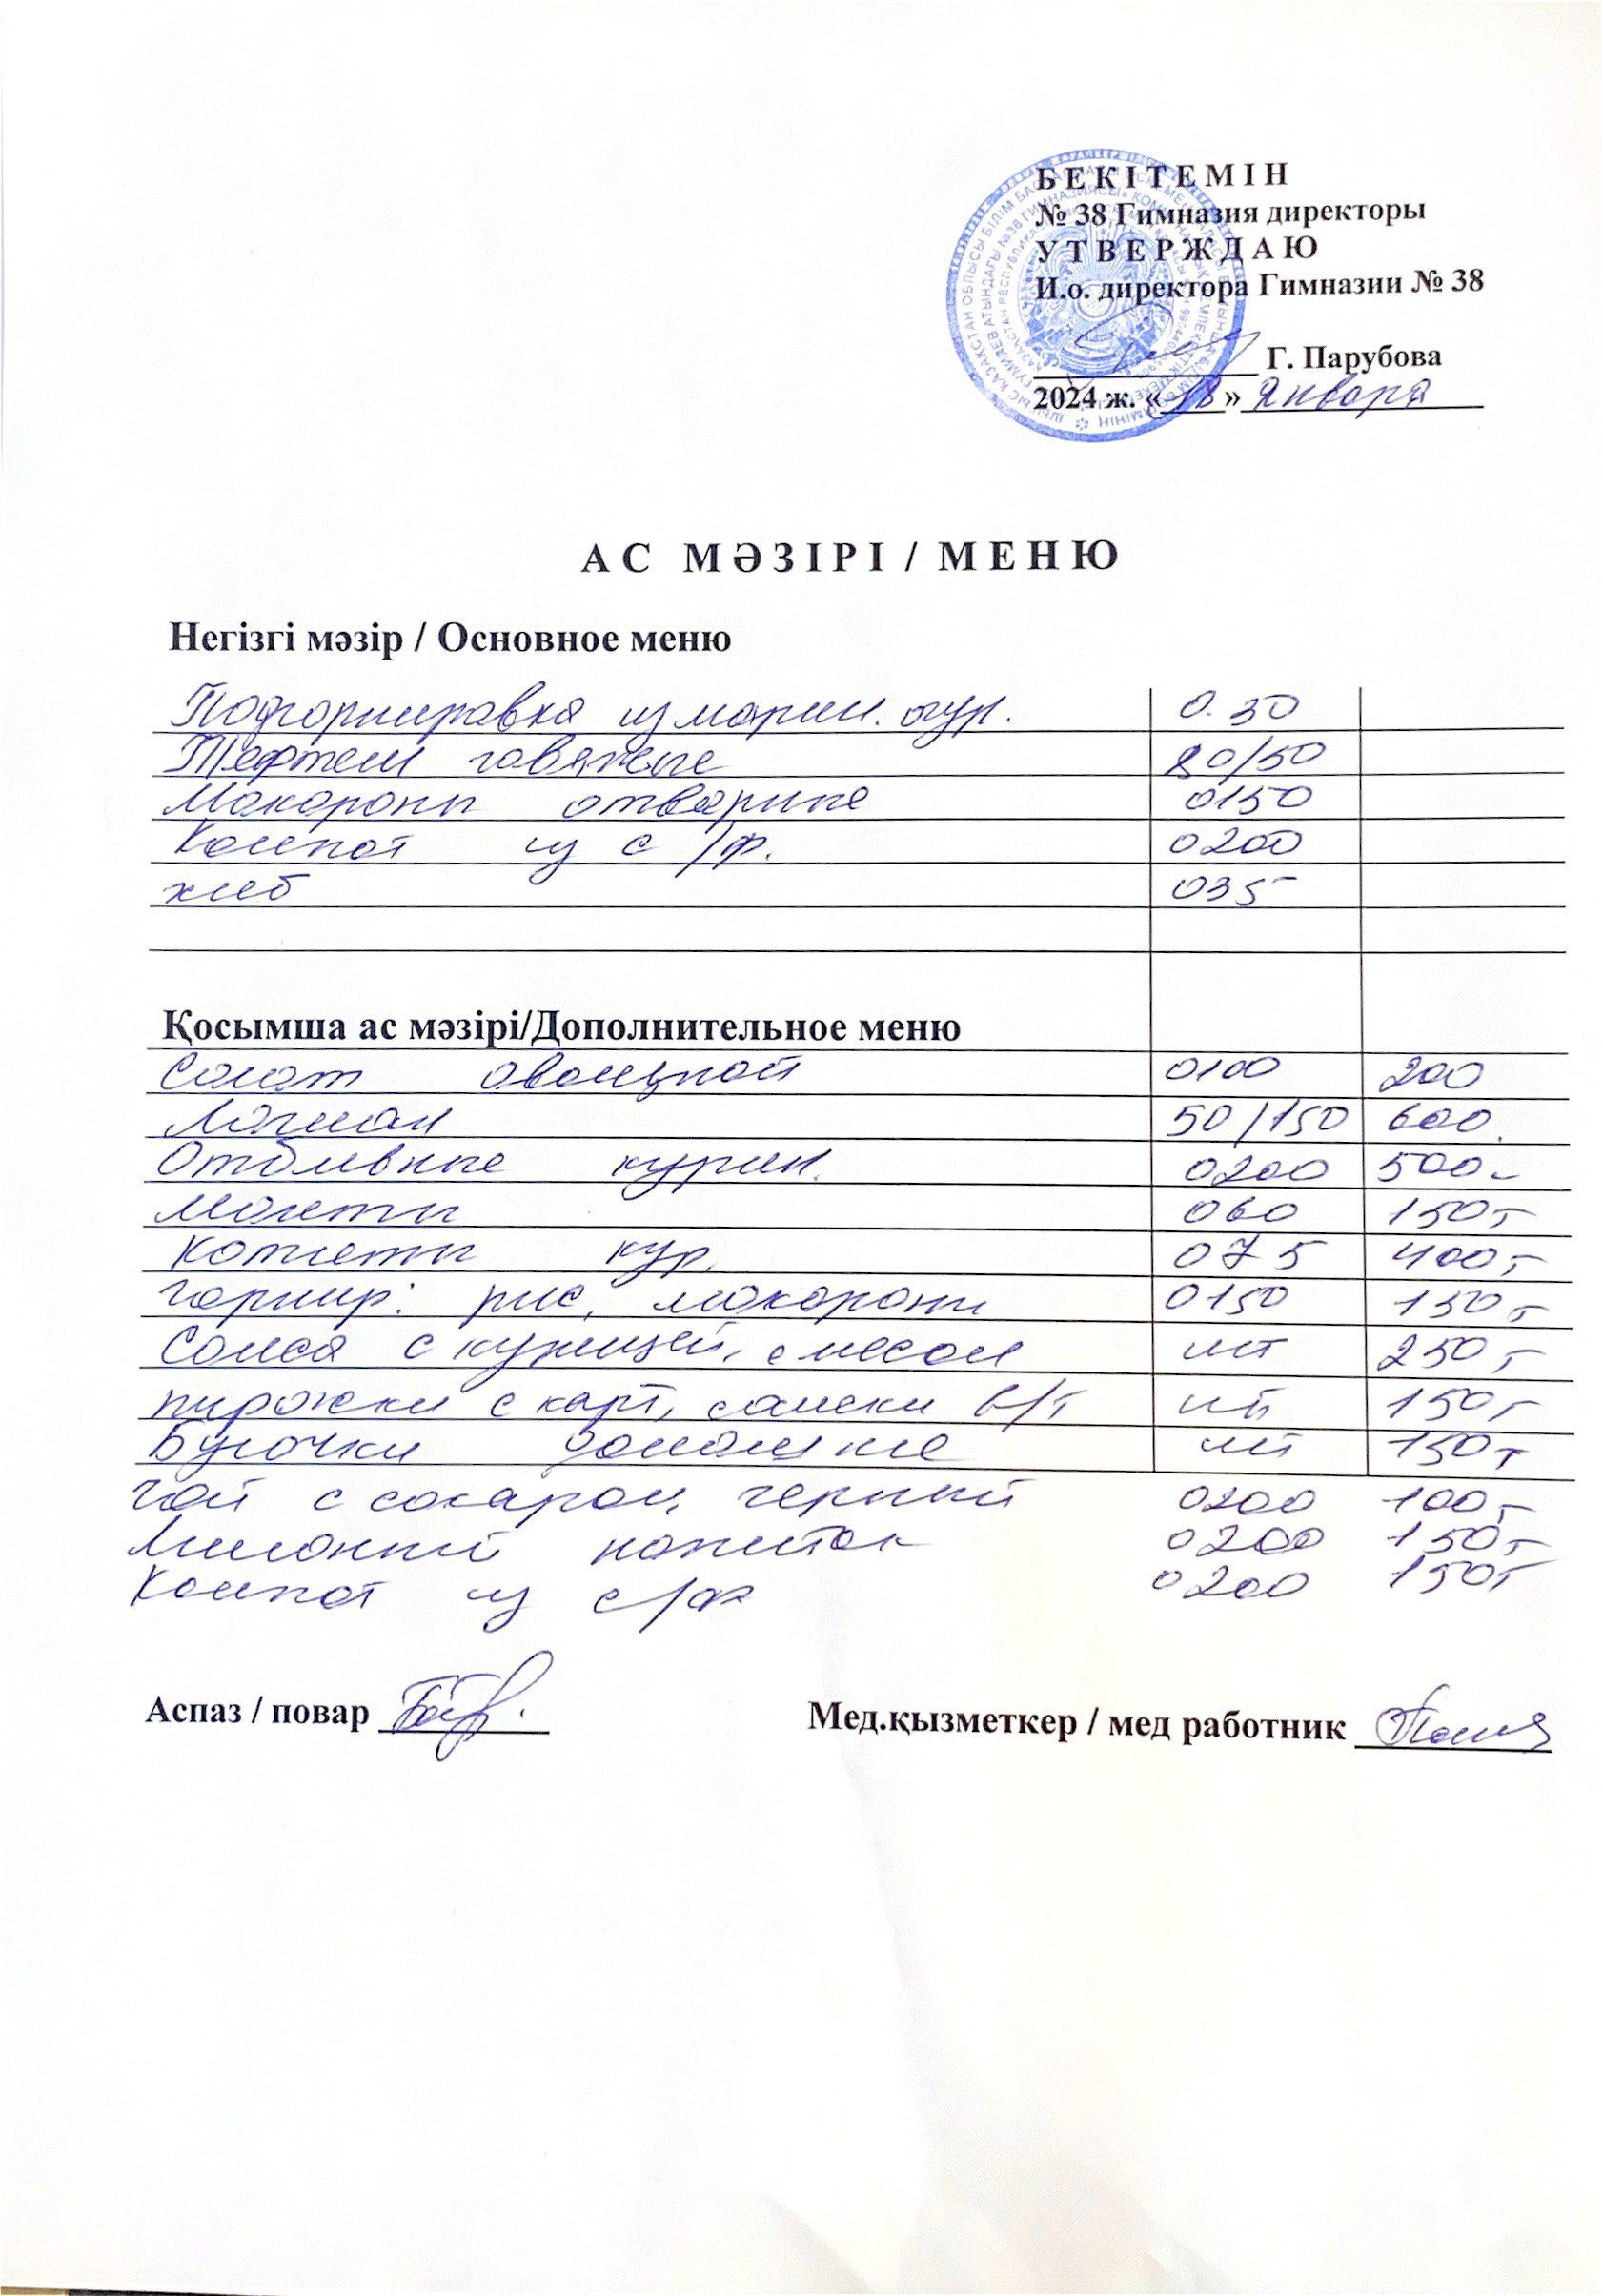 БЕКІТЕМІН
№ 38 Гимназия директоры
УТВЕРЖДАЮ
И.о. директора Гимназии № 38
Г. Парубова
2024 ж. «18» января
АС МӘЗІРІ / МЕНЮ
Негізгі мәзір / Основное меню
Подгорнировка из марин. огур. 0.30
Тефтели говяжьие 80/50
Макароны отварные 0150
Компот из с/ф. 0200
хлеб 035
Қосымша ас мәзірі/Дополнительное меню
Салат овощной 0100 200
Лагман 50/150 600
Отбивные курин. 0200 500-
Манты 060 150т
Котлеты кур. 075 400т
Гарнир: рис, макароны 0150 150т
Самса с курицей, с мясом шт 250т
пирожки с карт, сосиски в/т шт 150т
Булочки домашние шт 150т
Чай с сахаром, черный 0200 100т
Лимонный напиток 0200 150т
Компот из с/ф 0200 150т
Аспаз / повар
Мед.қызметкер / мед работник